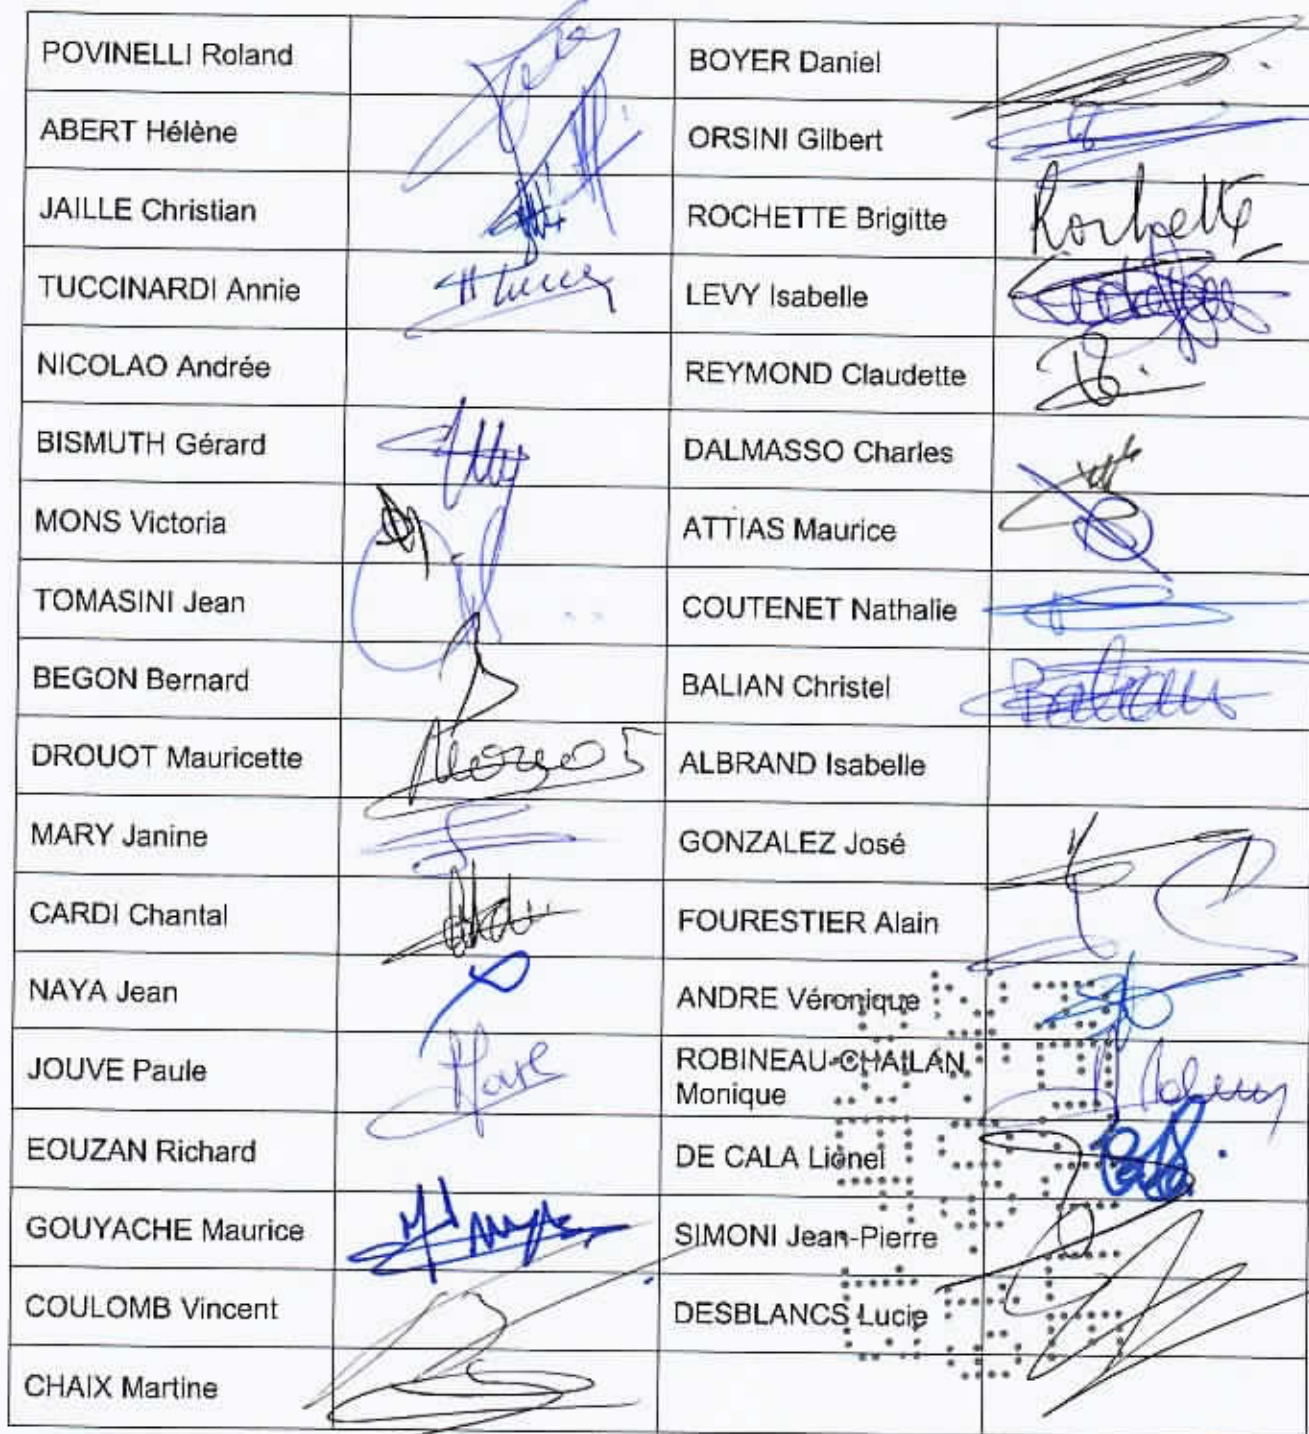 POVINELLI Roland
BOYER Daniel
ABERT Hélène
ORSINI Gilbert
JAILLE Christian
ROCHETTE Brigitte
Rochette
TUCCINARDI Annie
LEVY Isabelle
NICOLAO Andrée
REYMOND Claudette
BISMUTH Gérard
DALMASSO Charles
MONS Victoria
ATTIAS Maurice
TOMASINI Jean
COUTENET Nathalie
BEGON Bernard
BALIAN Christel
Balian
DROUOT Mauricette
ALBRAND Isabelle
MARY Janine
GONZALEZ José
CARDI Chantal
FOURESTIER Alain
NAYA Jean
ANDRE Véronique
JOUVE Paule
ROBINEAU-CHAILAN
Monique
EOUZAN Richard
DE CALA Lionel
GOUYACHE Maurice
SIMONI Jean-Pierre
COULOMB Vincent
DESBLANCS Lucie
CHAIX Martine